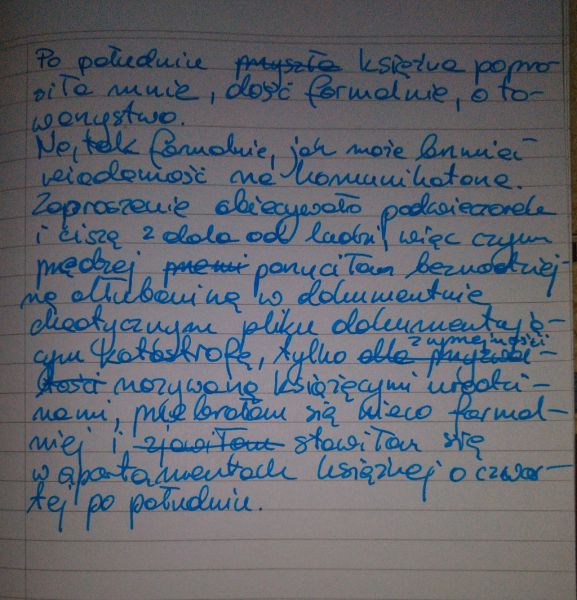 Po południu przyszła księżna popro-
siła mnie, dość formalnie, o to-
warzystwo.
No, tak formalnie, jak może brzmieć
wiadomość na komunikatorze.
Zaproszenie obiecywało podwieczorek
i ciszę z dala od ludzi, więc czym
prędzej porzuciłam beznadziej-
ną dłubaninę w dokumentnie
chaotycznym pliku dokumentują-
cym katastrofę, tylko dla
z uprzejmości
nazywaną książęcymi urodzi-
nami, przebrałam się nieco formal-
niej i zjawiłam stawiłam się
w apartamentach księżnej o czwar-
tej po południu.